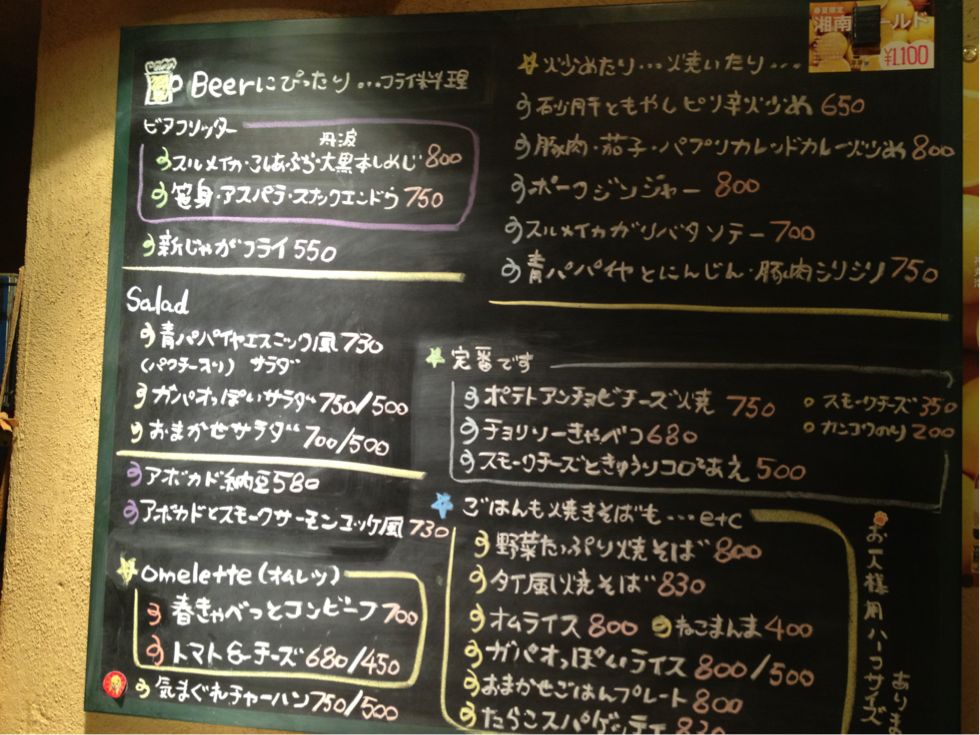 Beerにぴったり...フライ料理
ビアフリッター
丹波
スルメイカ・こしあぶら・大黒本しめじ 800
笹身・アスパラ・スナックエンドウ 750
新じゃがフライ 550
Salad
青パパイヤエスニック風 730
(パクチー入り) サラダ
ガパオっぽいサラダ 750/500
おまかせサラダ 700/500
アボカド納豆 580
アボカドとスモークサーモンユッケ風 730
omelette (オムレツ)
春きゃべつとコンビーフ 700
トマト&チーズ 680/450
気まぐれチャーハン 750/500
春夏限定
湘南ールド
¥1,100
炒めたり...焼いたり...
砂肝ともやしピリ辛炒め 650
豚肉・茄子・パプリカレッドカレー炒め 800
ポークジンジャー 800
スルメイカガリバタソテー 700
青パパイヤとにんじん・豚肉シリシリ 750
定番です
ポテトアンチョビチーズ焼 750
チョリソーきゃべつ 680
スモークチーズときゅうりコロコロあえ 500
スモークチーズ 350
カンコクのり 200
ごはんも焼きそばも...etc
野菜たっぷり焼そば 800
タイ風焼そば 830
オムライス 800 ねこまんま 400
ガパオっぽいライス 800/500
おまかせごはんプレート 800
たらこスパゲッティ 830
お一人様用ハーフサイズ
ありま